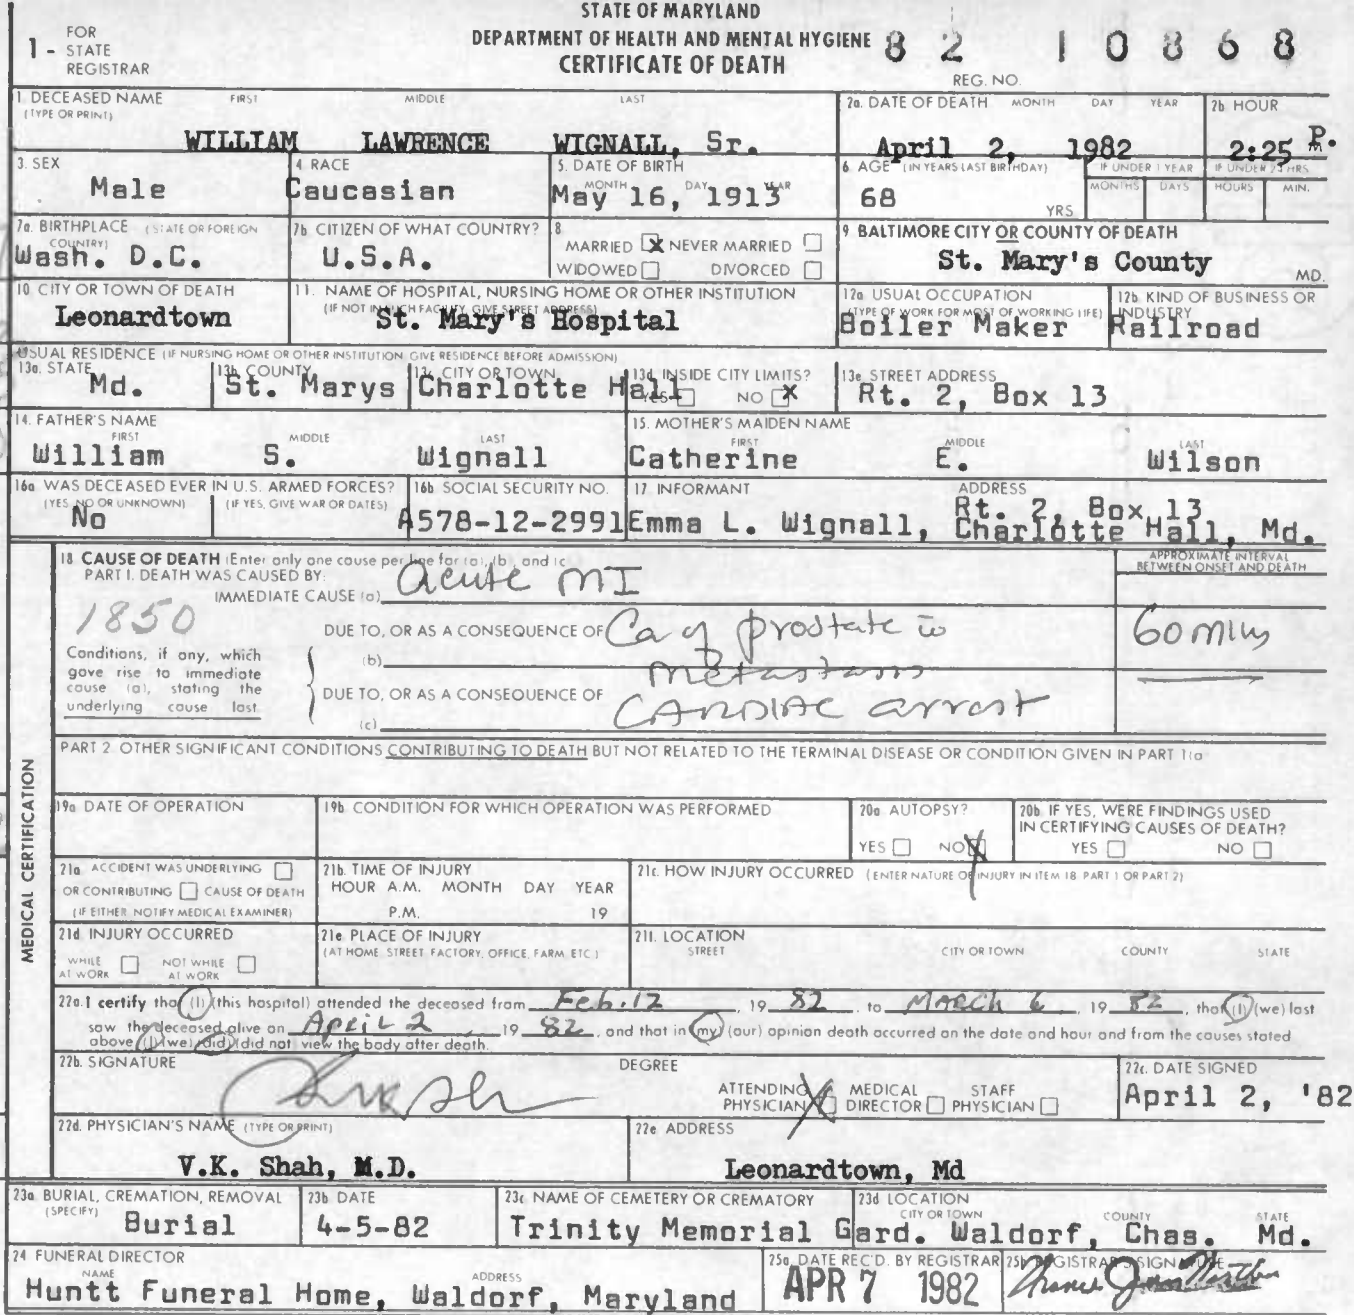 STATE OF MARYLAND
DEPARTMENT OF HEALTH AND MENTAL HYGIENE
CERTIFICATE OF DEATH
1 - FOR STATE REGISTRAR
82 10868
REG. NO.
1 DECEASED NAME FIRST MIDDLE LAST
(TYPE OR PRINT)
WILLIAM LAWRENCE WIGNALL, Sr.
2a. DATE OF DEATH MONTH DAY YEAR
April 2, 1982
2b HOUR
2:25 P.M
3. SEX
Male
4 RACE
Caucasian
5. DATE OF BIRTH
MONTH DAY YEAR
May 16, 1913
6 AGE (IN YEARS LAST BIRTHDAY)
68 YRS
IF UNDER 1 YEAR
MONTHS DAYS
IF UNDER 23 HRS
HOURS MIN.
7a. BIRTHPLACE (STATE OR FOREIGN COUNTRY)
Wash. D.C.
7b CITIZEN OF WHAT COUNTRY?
U.S.A.
8
MARRIED X NEVER MARRIED
WIDOWED DIVORCED
9 BALTIMORE CITY OR COUNTY OF DEATH
St. Mary's County MD.
10. CITY OR TOWN OF DEATH
Leonardtown
11. NAME OF HOSPITAL, NURSING HOME OR OTHER INSTITUTION
(IF NOT IN SUCH FACILITY, GIVE STREET ADDRESS)
St. Mary's Hospital
12a USUAL OCCUPATION
(TYPE OF WORK FOR MOST OF WORKING LIFE)
Boiler Maker
12b KIND OF BUSINESS OR INDUSTRY
Railroad
USUAL RESIDENCE (IF NURSING HOME OR OTHER INSTITUTION GIVE RESIDENCE BEFORE ADMISSION)
13a. STATE
Md.
13b COUNTY
St. Marys
13c CITY OR TOWN
Charlotte Hall
13d INSIDE CITY LIMITS?
YES NO X
13e STREET ADDRESS
Rt. 2, Box 13
14. FATHER'S NAME
FIRST MIDDLE LAST
William S. Wignall
15. MOTHER'S MAIDEN NAME
FIRST MIDDLE LAST
Catherine E. Wilson
16a WAS DECEASED EVER IN U.S. ARMED FORCES?
(YES, NO OR UNKNOWN) (IF YES, GIVE WAR OR DATES)
No
16b SOCIAL SECURITY NO.
A578-12-2991
17 INFORMANT ADDRESS
Rt. 2, Box 13
Emma L. Wignall, Charlotte Hall, Md.
18 CAUSE OF DEATH (Enter only one cause per line for (a), (b), and (c)
PART I. DEATH WAS CAUSED BY:
IMMEDIATE CAUSE (a) acute MI
APPROXIMATE INTERVAL
BETWEEN ONSET AND DEATH
1850
Conditions, if any, which
gave rise to immediate
cause (a), stating the
underlying cause last
DUE TO, OR AS A CONSEQUENCE OF Ca of prostate w
(b) metastasis
60 mins
DUE TO, OR AS A CONSEQUENCE OF
(c) CARDIAC arrest
PART 2 OTHER SIGNIFICANT CONDITIONS CONTRIBUTING TO DEATH BUT NOT RELATED TO THE TERMINAL DISEASE OR CONDITION GIVEN IN PART 1(a
MEDICAL CERTIFICATION
19a DATE OF OPERATION
19b CONDITION FOR WHICH OPERATION WAS PERFORMED
20a AUTOPSY?
YES NO X
20b IF YES, WERE FINDINGS USED
IN CERTIFYING CAUSES OF DEATH?
YES NO
21a ACCIDENT WAS UNDERLYING
OR CONTRIBUTING CAUSE OF DEATH
(IF EITHER NOTIFY MEDICAL EXAMINER)
21b. TIME OF INJURY
HOUR A.M. MONTH DAY YEAR
P.M. 19
21c. HOW INJURY OCCURRED (ENTER NATURE OF INJURY IN ITEM 18 PART 1 OR PART 2)
21d INJURY OCCURRED
WHILE AT WORK NOT WHILE AT WORK
21e PLACE OF INJURY
(AT HOME, STREET, FACTORY, OFFICE, FARM ETC.)
21f. LOCATION
STREET CITY OR TOWN COUNTY STATE
22a. I certify that (I) (this hospital) attended the deceased from Feb. 12, 19 82, to March 6, 19 82, that (I) (we) last
saw the deceased alive on April 2, 19 82, and that in (my) (our) opinion death occurred on the date and hour and from the causes stated
above (I) (we) (did) (did not view the body after death.
22b. SIGNATURE
DEGREE
ATTENDING PHYSICIAN X MEDICAL DIRECTOR STAFF PHYSICIAN
22c. DATE SIGNED
April 2, '82
22d. PHYSICIAN'S NAME (TYPE OR PRINT)
V.K. Shah, M.D.
22e ADDRESS
Leonardtown, Md
23a BURIAL, CREMATION, REMOVAL
(SPECIFY)
Burial
23b DATE
4-5-82
23c NAME OF CEMETERY OR CREMATORY
Trinity Memorial Gard.
23d LOCATION
CITY OR TOWN COUNTY STATE
Waldorf, Chas. Md.
24 FUNERAL DIRECTOR
NAME ADDRESS
Huntt Funeral Home, Waldorf, Maryland
25a. DATE REC'D. BY REGISTRAR
APR 7 1982
25b REGISTRAR'S SIGNATURE